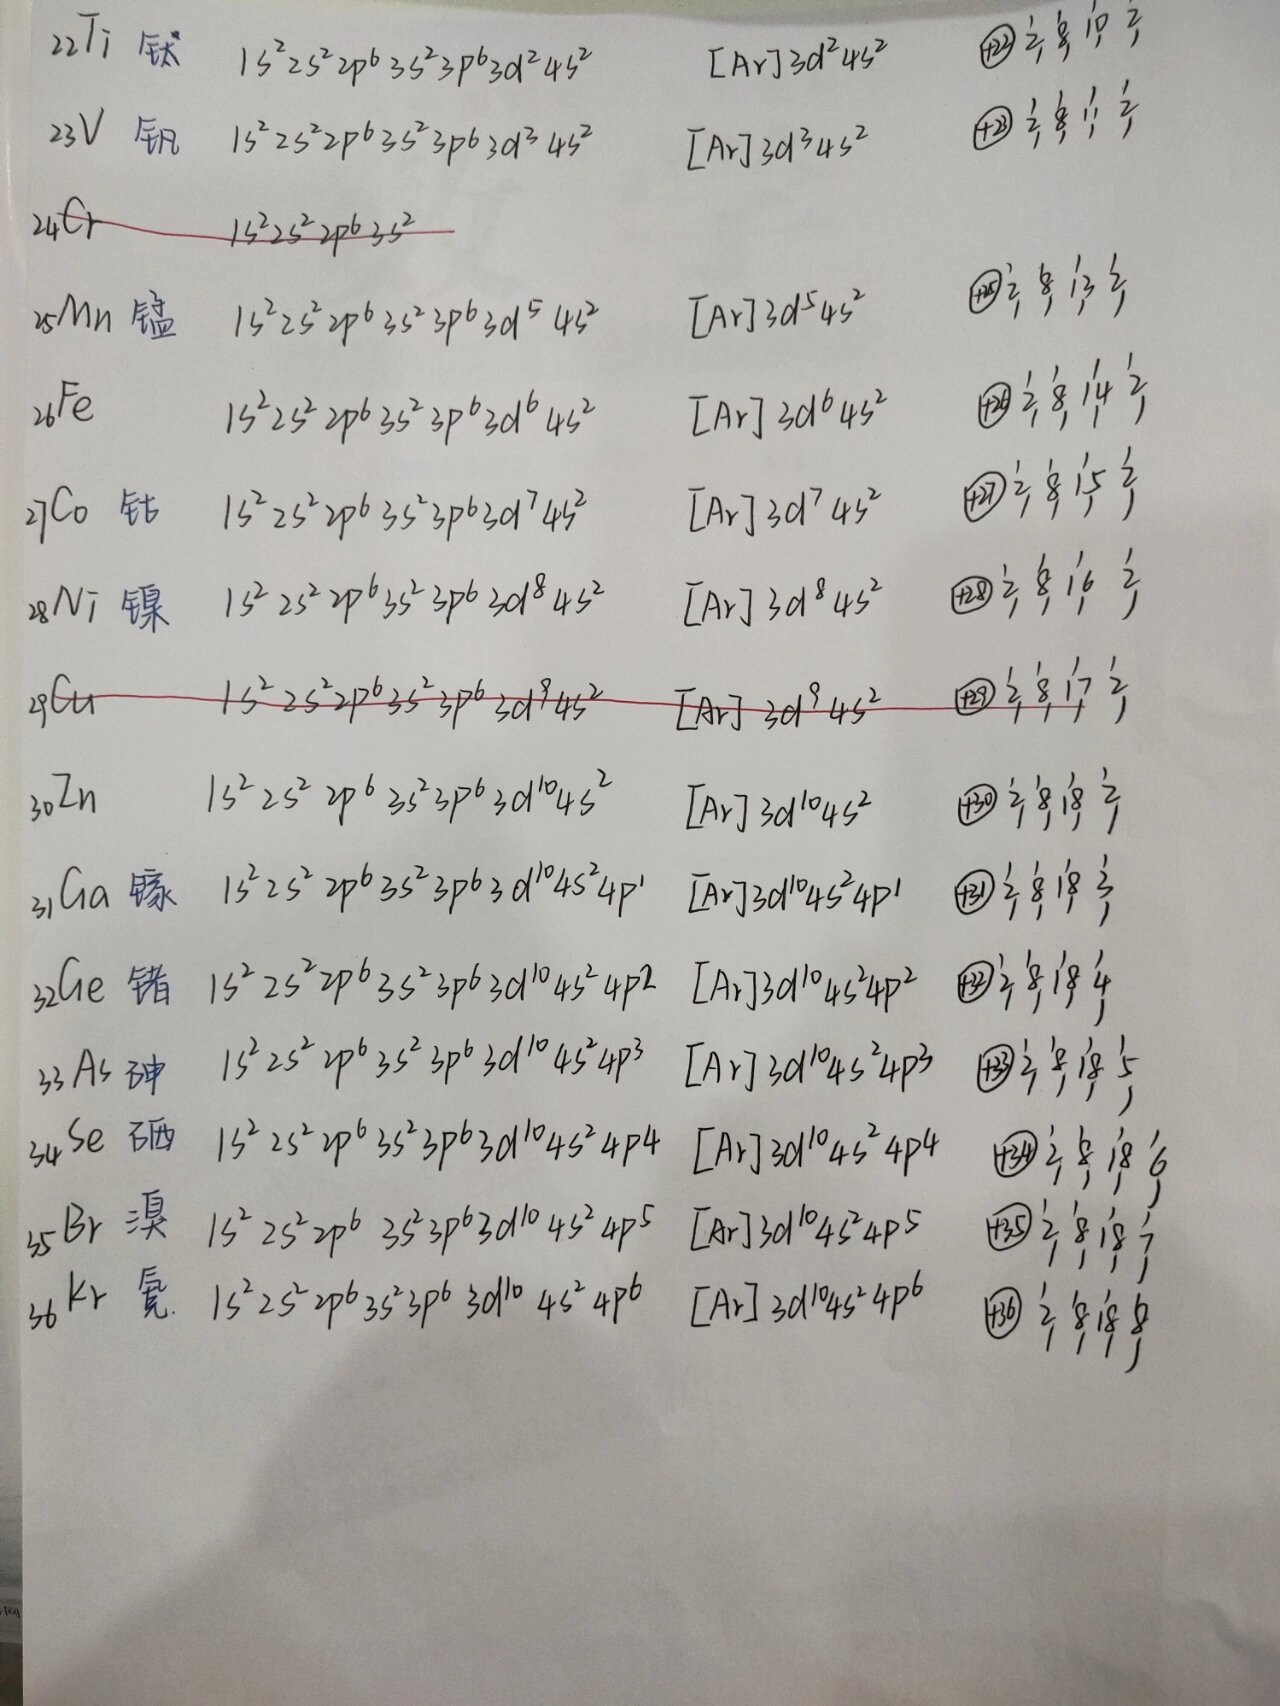 22Ti 钛 1s²2s²2p⁶3s²3p⁶3d²4s² [Ar]3d²4s² +22 2 8 10 2
23V 钒 1s²2s²2p⁶3s²3p⁶3d³4s² [Ar]3d³4s² +23 2 8 11 2
24Cr 1s²2s²2p⁶3s²
25Mn 锰 1s²2s²2p⁶3s²3p⁶3d⁵4s² [Ar]3d⁵4s² +25 2 8 13 2
26Fe 1s²2s²2p⁶3s²3p⁶3d⁶4s² [Ar]3d⁶4s² +26 2 8 14 2
27Co 钴 1s²2s²2p⁶3s²3p⁶3d⁷4s² [Ar]3d⁷4s² +27 2 8 15 2
28Ni 镍 1s²2s²2p⁶3s²3p⁶3d⁸4s² [Ar]3d⁸4s² +28 2 8 16 2
29Cu 1s²2s²2p⁶3s²3p⁶3d⁹4s² [Ar]3d⁹4s² +29 2 8 17 2
30Zn 1s²2s²2p⁶3s²3p⁶3d¹⁰4s² [Ar]3d¹⁰4s² +30 2 8 18 2
31Ga 镓 1s²2s²2p⁶3s²3p⁶3d¹⁰4s²4p¹ [Ar]3d¹⁰4s²4p¹ +31 2 8 18 3
32Ge 锗 1s²2s²2p⁶3s²3p⁶3d¹⁰4s²4p² [Ar]3d¹⁰4s²4p² +32 2 8 18 4
33As 砷 1s²2s²2p⁶3s²3p⁶3d¹⁰4s²4p³ [Ar]3d¹⁰4s²4p³ +33 2 8 18 5
34Se 硒 1s²2s²2p⁶3s²3p⁶3d¹⁰4s²4p⁴ [Ar]3d¹⁰4s²4p⁴ +34 2 8 18 6
35Br 溴 1s²2s²2p⁶3s²3p⁶3d¹⁰4s²4p⁵ [Ar]3d¹⁰4s²4p⁵ +35 2 8 18 7
36Kr 氪 1s²2s²2p⁶3s²3p⁶3d¹⁰4s²4p⁶ [Ar]3d¹⁰4s²4p⁶ +36 2 8 18 8